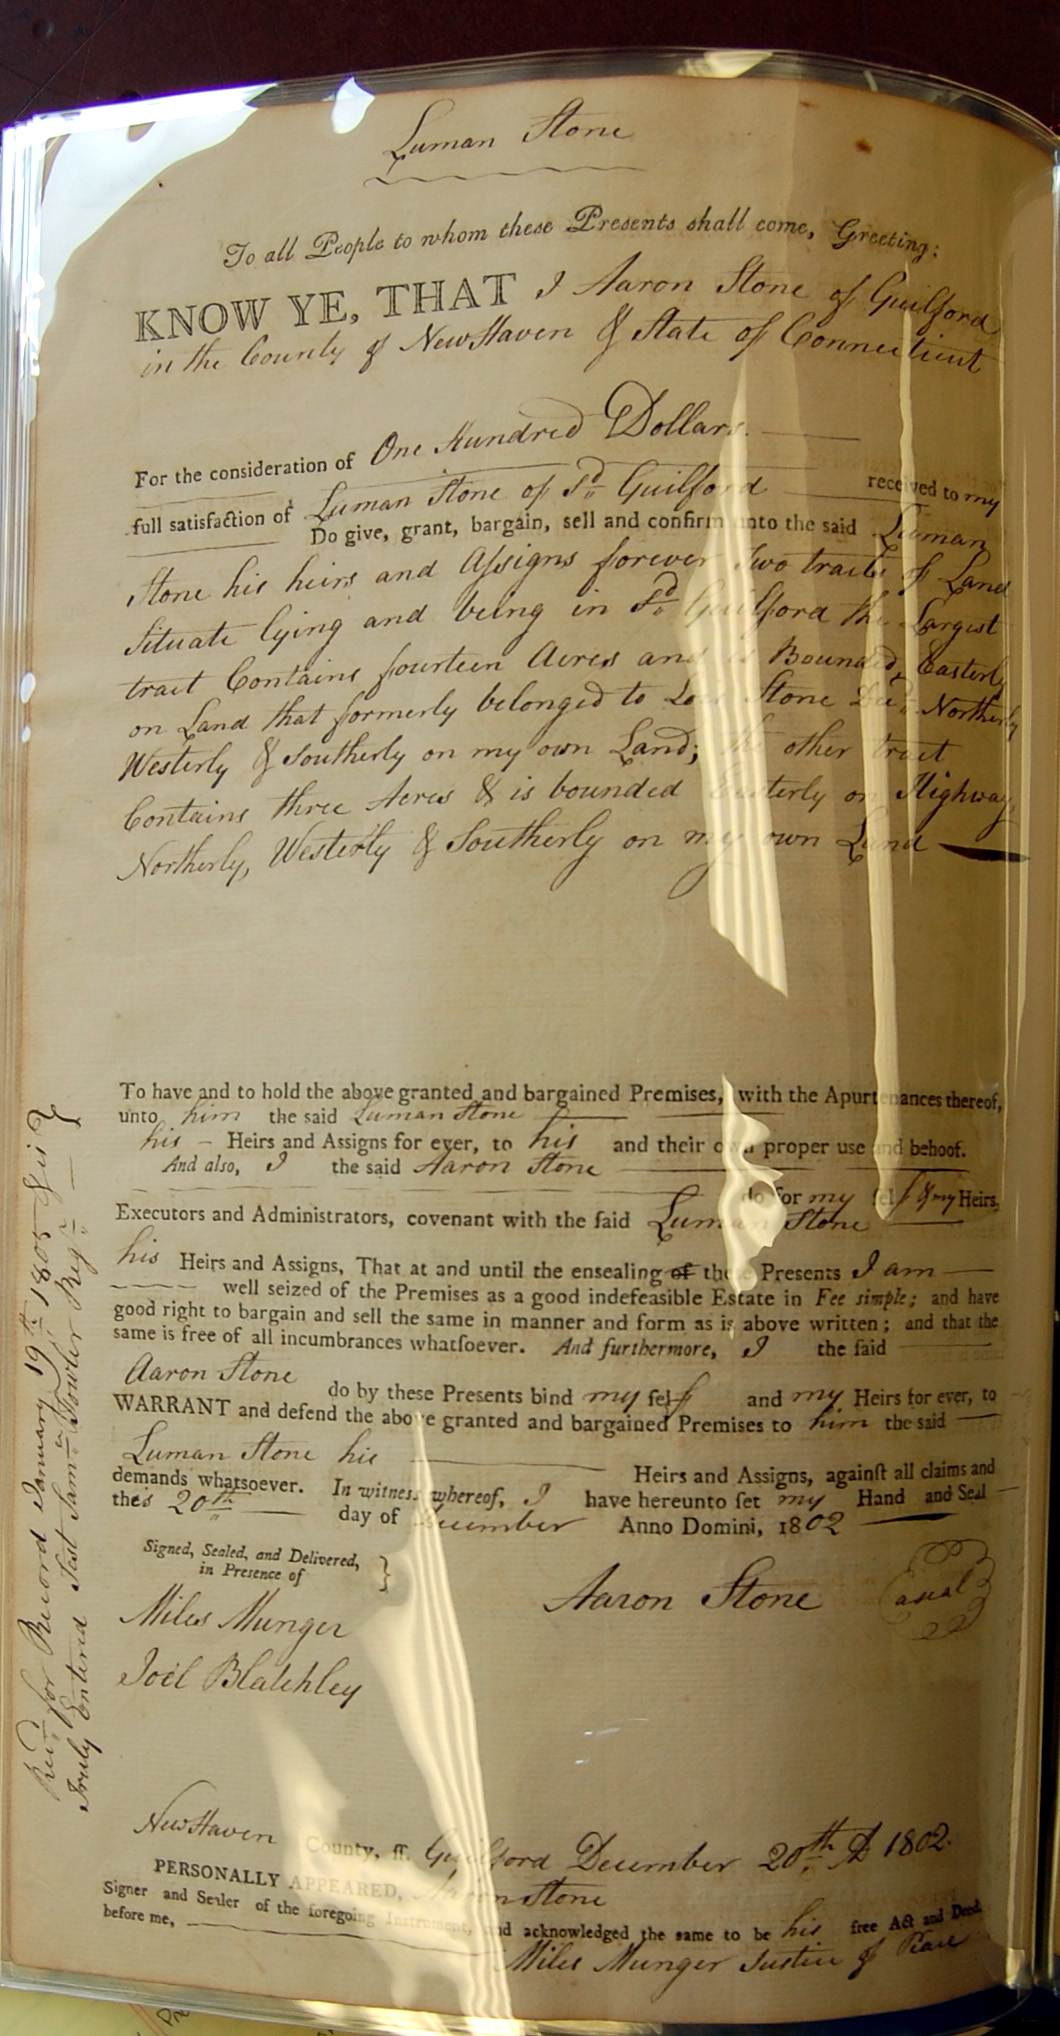 Luman Stone
To all People to whom these Presents shall come, Greeting:
KNOW YE, THAT I Aaron Stone of Guilford
in the County of New Haven & State of Connecticut
For the consideration of One Hundred Dollars.
received to my
full satisfaction of Luman Stone of Sd Guilford
Do give, grant, bargain, sell and confirm unto the said Luman
Stone his heirs and Assigns forever two tracts of Land
Situate lying and being in Sd Guilford the Largest
tract Contains fourteen Acres and is Bounded, Easterly
on Land that formerly belonged to Stone Decd Northerly
Westerly & Southerly on my own Land; the other tract
Contains three Acres & is bounded Easterly on Highway,
Northerly, Westerly & Southerly on my own Land
To have and to hold the above granted and bargained Premises, with the Apurtenances thereof,
unto him the said Luman Stone
his Heirs and Assigns for ever, to his and their own proper use and behoof.
And also, I the said Aaron Stone
do for my self & my Heirs,
Executors and Administrators, covenant with the said Luman Stone
his Heirs and Assigns, That at and until the ensealing of these Presents I am
well seized of the Premises as a good indefeasible Estate in Fee simple; and have
good right to bargain and sell the same in manner and form as is above written; and that the
same is free of all incumbrances whatsoever. And furthermore, I the said
Aaron Stone
do by these Presents bind my self and my Heirs for ever, to
WARRANT and defend the above granted and bargained Premises to him the said
Luman Stone his
Heirs and Assigns, against all claims and
demands whatsoever. In witness whereof, I have hereunto set my Hand and Seal
this 20th day of December Anno Domini, 1802
Signed, Sealed, and Delivered,
in Presence of
Aaron Stone
Miles Munger
Joel Blatchley
New Haven County, ss. Guilford December 20th AD 1802.
PERSONALLY APPEARED, Aaron Stone
Signer and Sealer of the foregoing Instrument, and acknowledged the same to be his free Act and Deed.
before me,
Miles Munger Justice of Peace
Recd for Record January 19th 1805 &is
Truly Entered Test Saml Fowler Regr